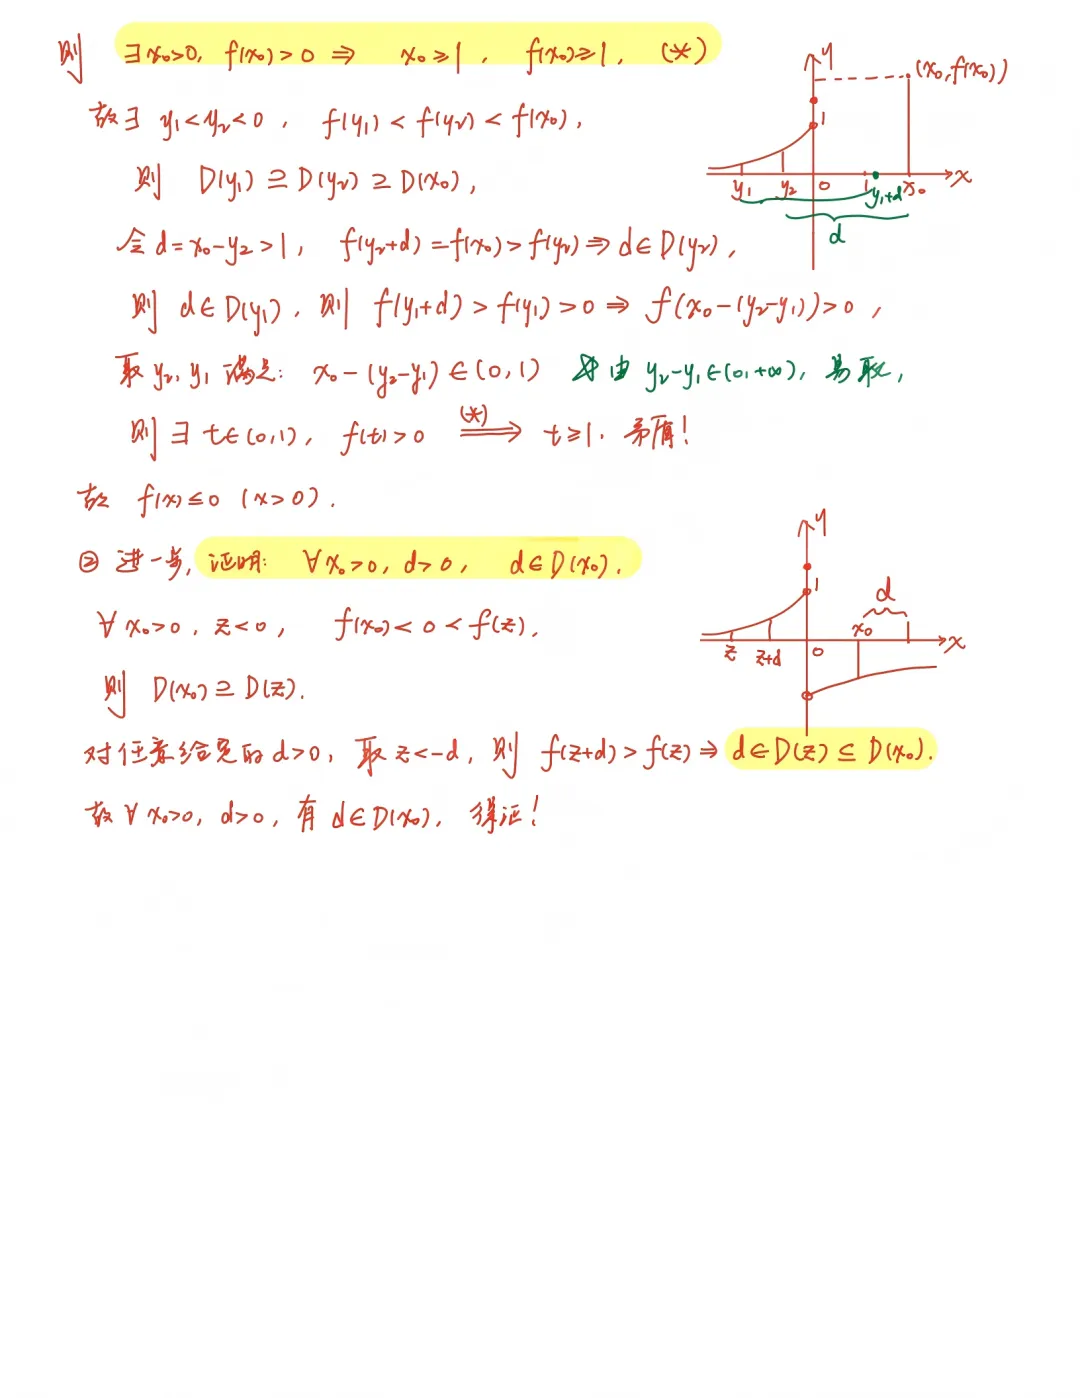 则 ∃x₀>0, f(x₀)>0 ⇒ x₀≥1, f(x₀)≥1, (*)
故∃ y₁<y₂<0, f(y₁)<f(y₂)<f(x₀),
则 D(y₁)⊇D(y₂)⊇D(x₀),
令 d=x₀-y₂>1, f(y₂+d)=f(x₀)>f(y₂)⇒d∈D(y₂),
则 d∈D(y₁), 则 f(y₁+d)>f(y₁)>0⇒f(x₀-(y₂-y₁))>0,
取 y₂, y₁ 满足: x₀-(y₂-y₁)∈(0,1) 由 y₂-y₁∈(0,+∞), 易取,
则∃ t∈(0,1), f(t)>0 (*)⇒ t≥1. 矛盾!
故 f(x)≤0 (x>0).
y
(x₀, f(x₀))
1
y₁ y₂ 0 1 y₁+d x₀ x
d
② 进一步, 证明: ∀x₀>0, d>0, d∈D(x₀).
∀x₀>0, z<0, f(x₀)<0<f(z),
则 D(x₀)⊇D(z).
对任意给定的 d>0, 取 z<-d, 则 f(z+d)>f(z)⇒d∈D(z)⊆D(x₀).
故∀x₀>0, d>0, 有 d∈D(x₀), 得证!
y
1
d
x₀
z z+d 0 x